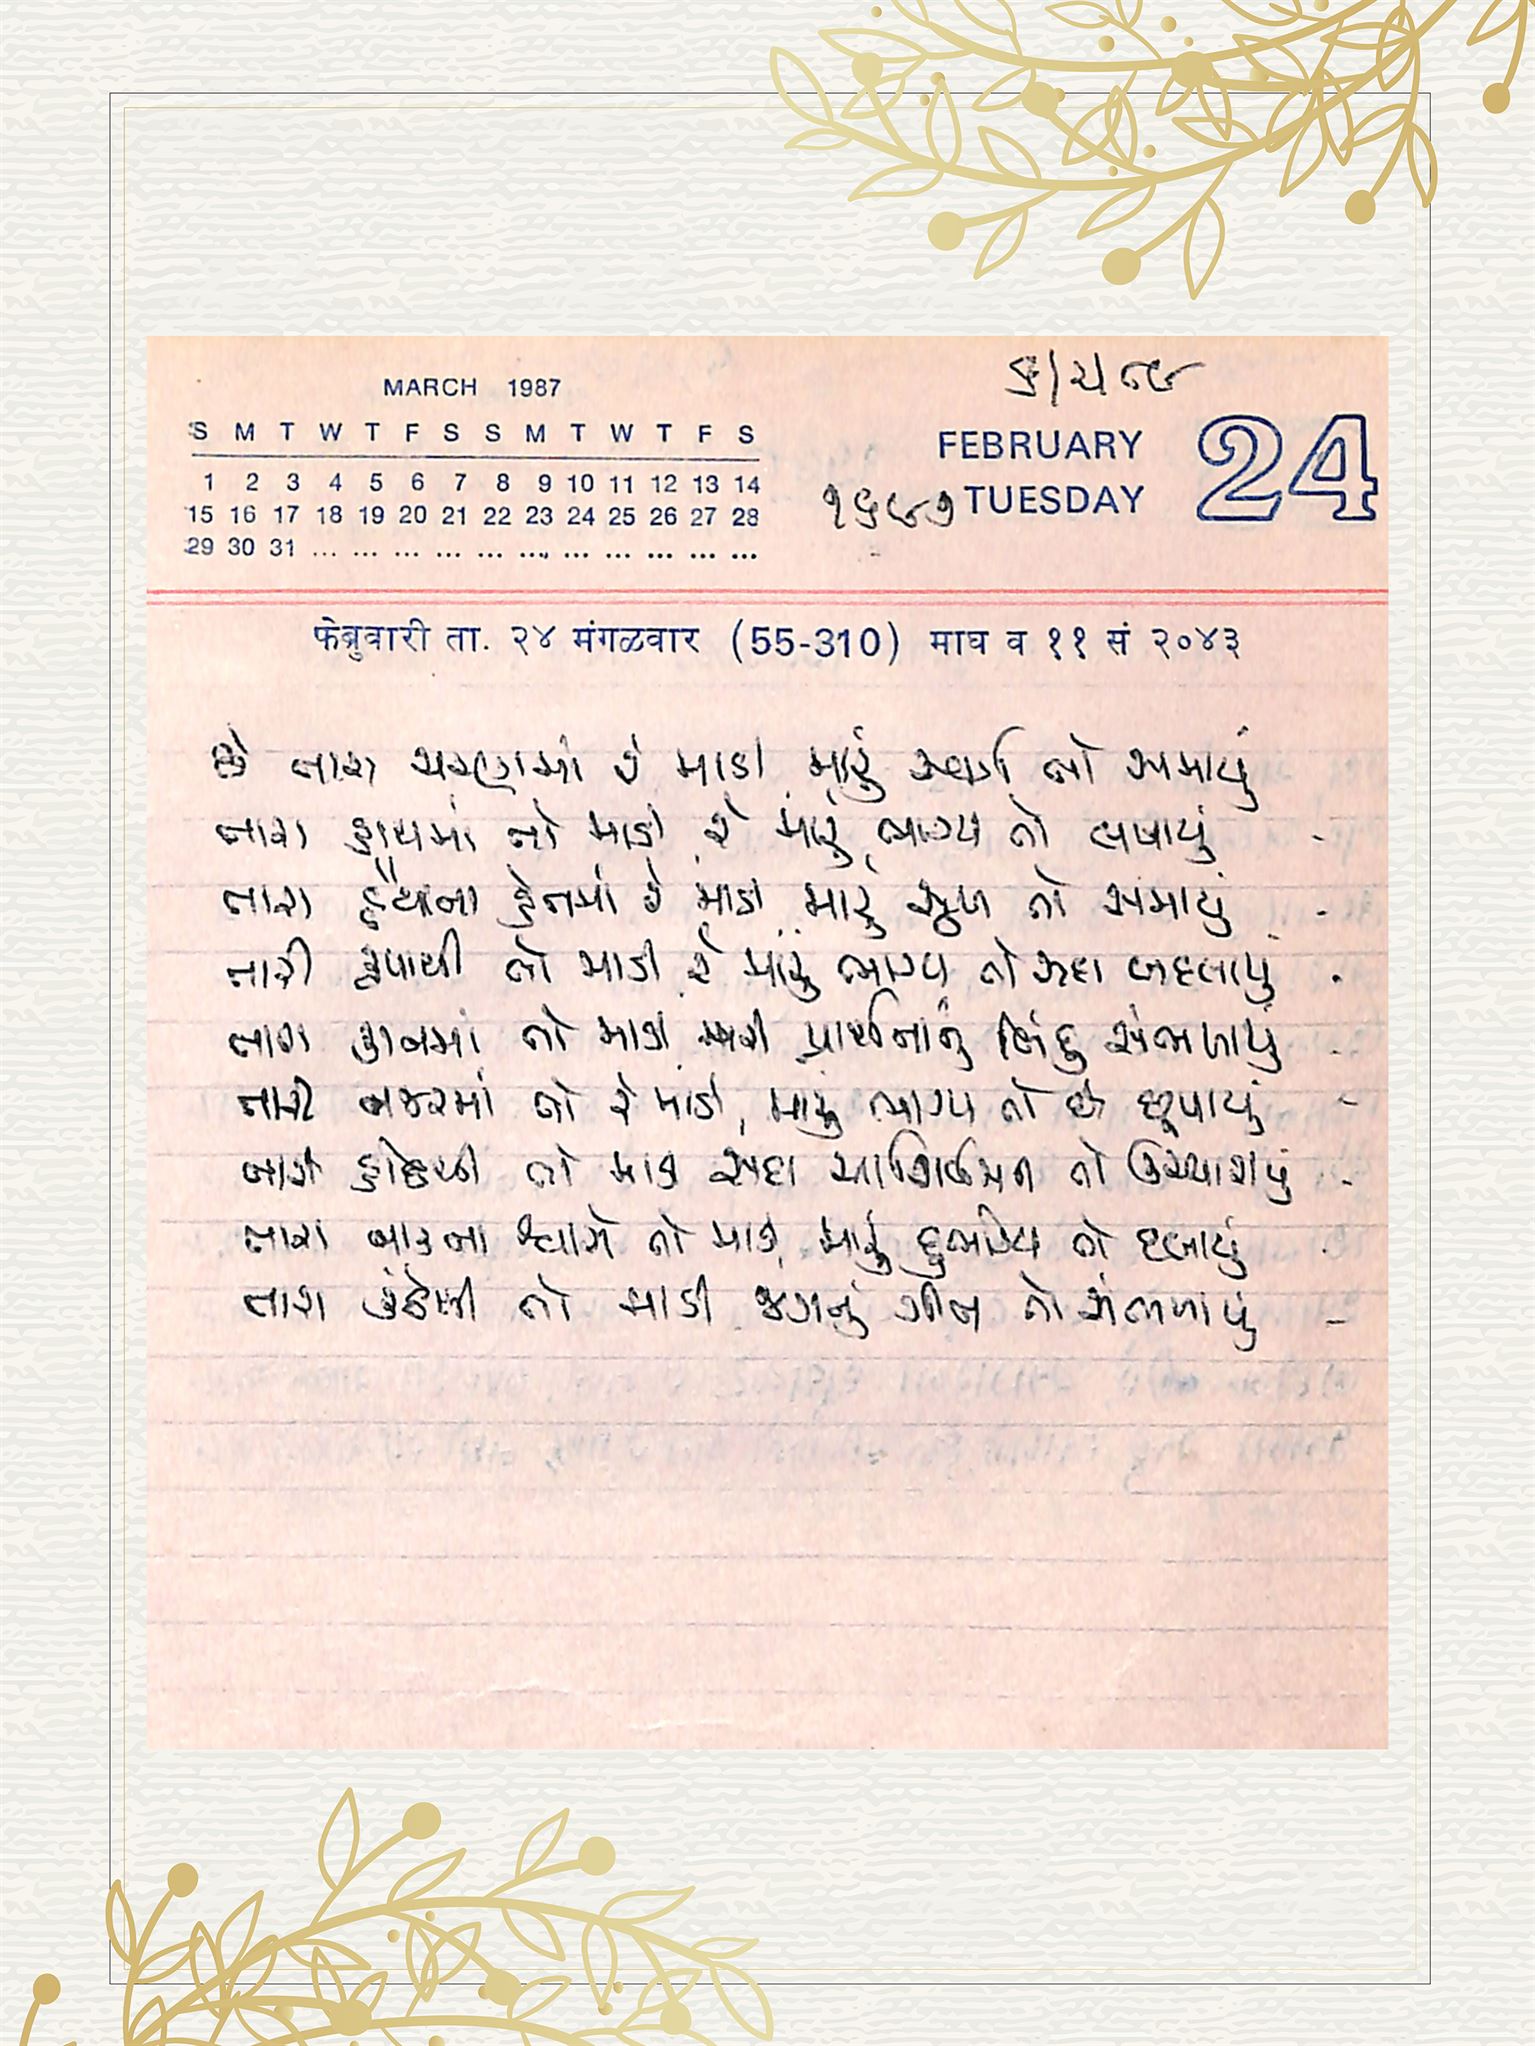 MARCH 1987
S M T W T F S S M T W T F S
1 2 3 4 5 6 7 8 9 10 11 12 13 14
15 16 17 18 19 20 21 22 23 24 25 26 27 28
29 30 31 ... ... ... ... ... ... ... ... ... ... ...
FEBRUARY
૧૯૮૭ TUESDAY
24
फेब्रुवारी ता. २४ मंगळवार (55-310) माघ व ११ सं २०४३
છે તારા ચરણમાં રે માડી મારું સ્વર્ગ તો સમાયું
તારા હાથમાં તો માડી રે મારું ભાગ્ય તો લખાયું -
તારા હૈયાના હેતમાં રે માડી મારું સુખ તો સમાયું -
તારી કૃપાથી તો માડી રે મારું ભાગ્ય તો સદા બદલાયું -
તારા કાનમાં તો માડી મારી પ્રાર્થનાનું બિંદુ સંભળાયું -
તારી નજરમાં તો રે માડી, મારું ભાગ્ય તો છે છુપાયું -
તારા હોઠેથી તો માડી સદા આશિર્વચન તો ઉચ્ચારાયું -
તારા નાકના શ્વાસે તો માડી મારું દુર્ભાગ્ય તો દબાયું -
તારા કંઠેથી તો માડી જગનું ગીત તો સંભળાયું -